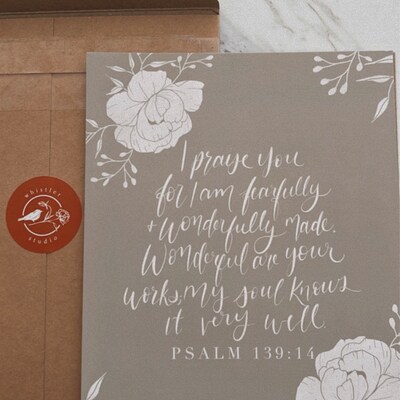 I praise you
for I am fearfully
+ wonderfully made.
Wonderful are your
works; my soul knows
it very well.
PSALM 139:14
whistler
studio